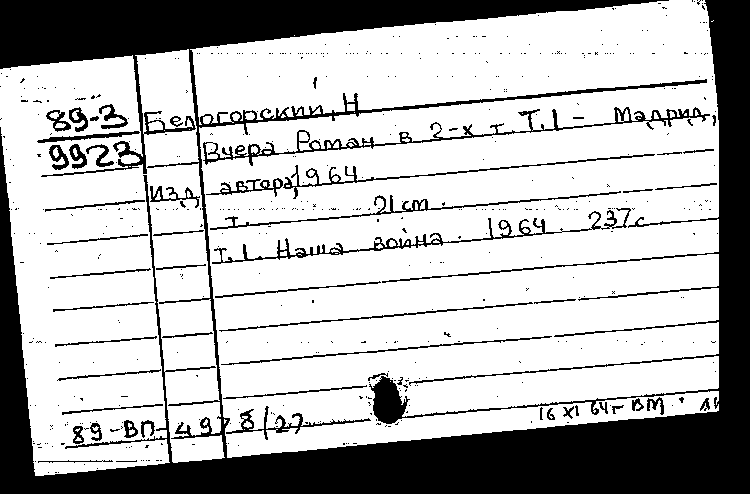 89-3 Белогорский, Н
9923 Вчера Роман в 2-х т. Т.1 - Мадрид,
Изд. автора, 1964.
т. 21 cm.
т.1. Наша война. 1964. 237с
89-ВП-4978/27
16 XI 64г ВМ